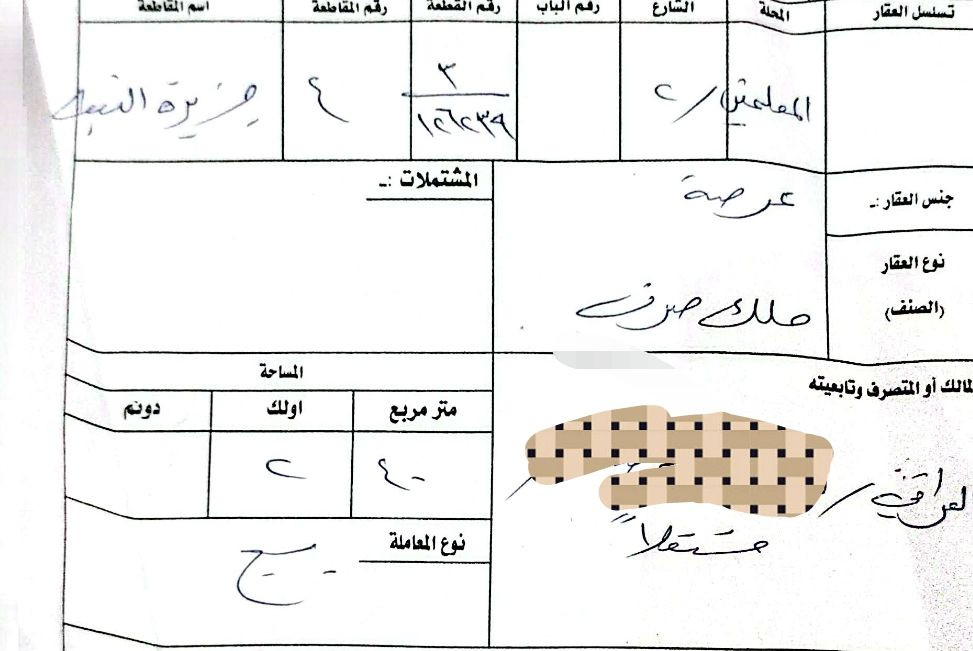 تسلسل العقار المحلة الشارع رقم الباب رقم القطعة رقم المقاطعة اسم المقاطعة
المعلمين / ٢ ٣ ٤ جزيرة
١٢٦٢٣٩
جنس العقار :ـ عرصة المشتملات :ـ
نوع العقار
(الصنف) ملك صرف
المالك أو المتصرف وتابعيته
المساحة
متر مربع اولك دونم
٤٠ ٢
/
مستقلاً
نوع المعاملة
بيع